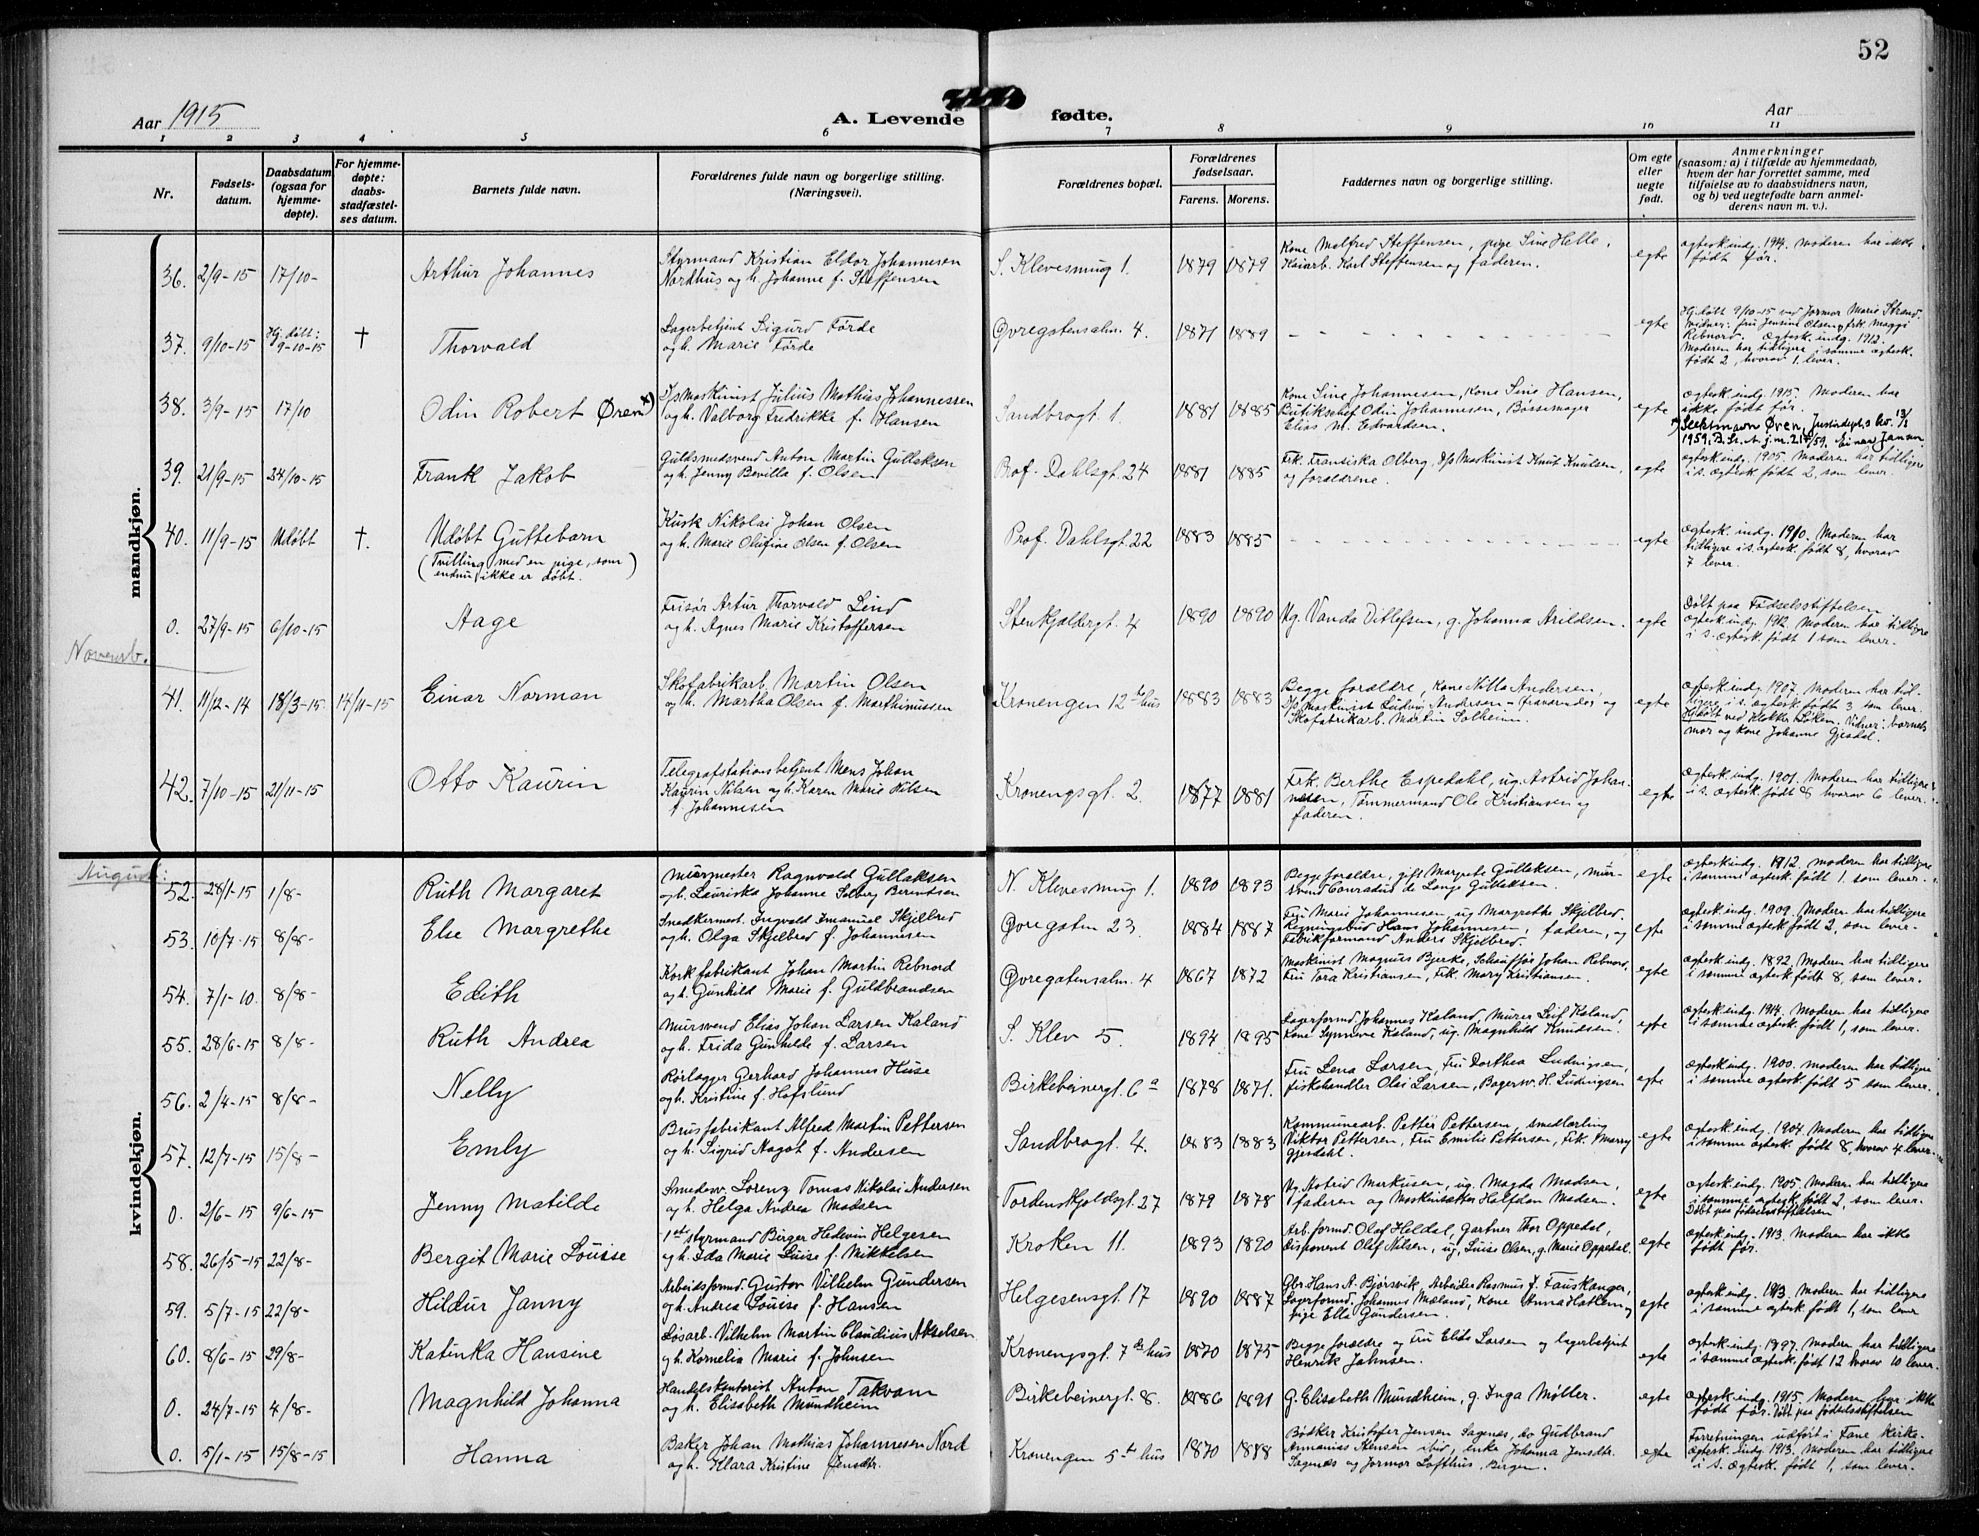 52
Aar 1915
A. Levende fødte.
Aar
1 2 3 4 5 6 7 8 9 10 11
Nr.
Fødsels-
datum.
Daabsdatum
(ogsaa for
hjemme-
døpte).
For hjemme-
døpte:
daabs-
stadfæstel-
ses datum.
Barnets fulde navn.
Forældrenes fulde navn og borgerlige stilling.
(Næringsvei).
Forældrenes bopæl.
Forældrenes
fødselsaar.
Farens. Morens.
Faddernes navn og borgerlige stilling.
Om egte
eller
uegte
født.
Anmerkninger
(saasom: a) i tilfælde av hjemmedaab,
hvem der har forrettet samme, med
tilføielse av to daabsvidners navn,
og b) ved uegtefødte barn anmel-
derens navn m. v.).
mandkjøn.
36. 2/9-15 17/10- Arthur Johannes
Styrmand Kristian Eldor Johannesen
Nordhus og h. Johanne f. Steffensen
S. Klevesmug 1. 1879 1879
Kone Malfred Steffensen, pige Sine Helle,
Kaiarb. Karl Steffensen og faderen.
egte
egtesk. indg. 1914. Moderen har ikke
født før.
37. 9/10-15 Hj. døbt: 9-10-15 † Thorvald
Lagerbetjent Sigurd Førde
og h. Marie Førde
Øvregatensalm. 4. 1871 1889
egte
Hj. døbt 9/10-15 ved Jormor Marie Strand.
Vidner: fru Jensine Olsen, frk. Maggi
Rebnord. Egtesk. indg. 1912.
Moderen har tidligere i samme egtesk.
født 2, hvorav 1 lever.
38. 3/9-15 17/10 Odin Robert Øren x)
D/s Maskinist Julius Mathias Johannessen
og h. Valborg Fredrikke f. Hansen
Sandbrogt. 1. 1881 1885
Kone Sine Johannesen, Kone Sine Hansen,
Butikschef Odin Johannesen, Bøssemager
Elias M. Edvardsen.
egte
egtesk. indg. 1915. Moderen har
ikke født før.
x) Slektsnavn Øren, Justisdept.s bv. 13/1
1959.
39. 21/9-15 24/10-15 Frank Jakob
Guldsmedsvend Anton Martin Gullaksen
og h. Jenny Bevilla f. Olsen
Prof. Dahlsgt. 24 1881 1885
Frk. Franciska Olberg, D/s Maskinist Knut Knutsen,
og forældrene.
egte
egtesk. indg. 1905. Moderen har tidligere
i s. egtesk. født 2, som lever.
40. 11/9-15 Udøbt †. Udøbt Guttebarn
(Tvilling med en pige, som
endnu ikke er døbt.)
Kusk Nikolai Johan Olsen
og h. Marie Olufine Olsen f. Olsen
Prof. Dahlsgt. 22 1883 1885
egte
egtesk. indg. 1910. Moderen har
tidligere i s. egtesk. født 8, hvorav
7 lever.
0. 27/9-15 6/10-15 Aage
Frisør Artur Thorvald Lind
og h. Agnes Marie Kristoffersen
Stenkjeldergt. 4 1890 1890
Ug. Vanda Ditlefsen, g. Johanna Arildsen.
egte
Døbt paa Fødselsstiftelsen.
egtesk. indg. 1912. Moderen har tidligere
i s. egtesk. født 1 som lever.
Novemb.
41. 11/12-14 18/3-15. 14/11-15 Einar Norman
Skofabrikarb. Martin Olsen
og h. Martha Olsen f. Marthinussen
Kronengen 12te hus 1883 1883
Begge forældre, Kone Nilla Andersen,
D/s Maskinist Ludvig Andersen - fraværende og
Skofabrikarb. Martin Solheim.
egte
egtesk. indg. 1907. Moderen har tid-
ligere i s. egtesk. født 3 som lever.
Hj. døbt ved Klokker Løken. Vidner: barnets
mor og kone Johanne Gjesdal.
42. 7/10-15 21/11-15 Otto Kaurin
Telegrafstationsbetjent Mens Johan
Kaurin Nilsen og h. Karen Marie Nilsen
f. Johannesen
Kronengsgt. 2. 1877 1881
Frk. Berthe Espedahl, ug. Astrid Johan-
nesen, Tømmermand Ole Kristiansen og
faderen.
egte
egtesk. indg. 1901. Moderen har tidligere
i s. egtesk. født 8 hvorav 6 lever.
kvindekjøn.
August:
52. 28/1-15 1/8- Ruth Margaret
Murmester Ragnvald Gullaksen
og h. Lauriska Johanne Solberg Berentsen
N. Klevesmug 1. 1890 1893
Begge forældre, gift Margrete Gullaksen, mur-
svend Conradius de Lange Gullaksen.
egte
egtesk. indg. 1912. Moderen har tidligere
i samme egtesk. født 1. som lever.
53. 10/7-15 8/8- Else Margrethe
Snedkermest. Ingvald Emanuel Skjelbred
og h. Olga Skjelbred f. Johannesen
Øvregaten 23. 1884 1887
Fru Marie Johannesen, ug. Margrethe Skjelbred.
Regningsbud Hans Johannesen, faderen, og
Fabrikformand Anders Skjelbred.
egte
egtesk. indg. 1909. Moderen har tidligere
i samme egtesk. født 2, som lever.
54. 7/1-10. 8/8- Edith
Korkfabrikant Johan Martin Rebnord
og h. Gunhild Marie f. Guldbrandsen
Øvregatensalm. 4 1867 1872
Maskinist Magnus Bjerke, Schauffør Johan Rebnord,
Fru Tora Kristiansen, Frk. Mary Kristiansen.
egte
egtesk. indg. 1892. Moderen har tidligere
i samme egtesk. født 8, som lever.
55. 28/6-15 8/8- Ruth Andrea
Mursvend Elias Johan Larsen Kaland
og h. Frida Gunhilde f. Larsen
S. Klev 5. 1894 1895
Lagerformd. Johannes Kaland, Murer Leif Kaland,
Kone Synnøve Kaland, ug. Magnhild Knudsen.
egte
egtesk. indg. 1914. Moderen har tidligere
i samme egtesk. født 1, som lever.
56. 2/4-15 8/8- Nelly
Rørlægger Gerhard Johannes Huse
og h. Kristine f. Hafslund
Birkebeinergt. 6a 1878 1871.
Fru Lena Larsen, Fru Dorthea Ludvigsen,
fiskehandler Olai Larsen, Bagersv. H. Ludvigsen
egte
egtesk. indg. 1900. Moderen har tidligere
i samme egtesk. født 5 som lever.
57. 12/7-15 15/8- Emly
Brusfabrikant Alfred Martin Pettersen
og h. Sigrid Aagot f. Andersen
Sandbrogt. 4. 1883 1883
Kommunearb. Petter Pettersen, smedlærling
Viktor Pettersen, Fru Emilie Pettersen, Frk. Marry
Gjesdahl.
egte
egtesk. indg. 1904. Moderen har tidligere
i samme egtesk. født 8, hvorav 4 lever.
0. 2/6-15 9/6-15 Jenny Matilde
Smedesv. Lorenz Tomas Nikolai Andersen
og h. Helga Andrea Madsen
Tordenskjoldsgt. 27 1879 1878
Ug. Astrid Markusen, ug. Magda Madsen,
faderen og Maskinsætter Halfdan Madsen.
egte
egtesk. indg. 1905. Moderen har tidligere
i samme egtesk. født 2, som lever.
Døbt paa fødselsstiftelsen
58. 26/5-15 22/8- Bergit Marie Louise
1ste styrmand Birger Hedvin Helgesen
og h. Ida Marie Luise f. Mikkelsen
Kroken 11. 1893 1890
Arb. formd. Olaf Heldal, gartner Thor Oppedal,
Disponent Olaf Nilsen, ug. Luise Olsen, g. Marie Oppedal.
egte
egtesk. indg. 1913. Moderen har ikke
født før.
59. 5/7-15 22/8- Hildur Janny
Arbeidsformd. Gustav Vilhelm Gundersen
og h. Andrea Louise f. Hansen
Helgesensgt. 17 1890 1887
Gbr. Hans A. Bjørsvik, Arbeider Rasmus J. Fauskanger,
Lagerformd. Johannes Mæland, Kone Anna Hatlem og
pige Ella Gundersen.
egte
egtesk. indg. 1913. Moderen har tidligere
i samme egtesk. født 1, som lever
60. 8/6-15 29/8- Katinka Hansine
Løsarb. Vilhelm Martin Claudius Akselsen
og h. Kornelia Marie f. Johnsen
Kronengsgt. 7de hus 1870 1875
Begge forældre og Fru Elida Larsen og lagerbetjent
Henrik Johnsen.
egte
egtesk. indg. 1897. Moderen har tidligere
i samme egtesk. født 12 hvorav 10 lever.
0. 24/7-15 4/8- Magnhild Johanna
Handelskontorist Anton Takvam
og h. Elisabeth Mundheim
Birkebeinergt. 8. 1886 1891
G. Elisabeth Mundheim, g. Inga Møller.
egte
egtesk. indg. 1915. Moderen har ikke
født før. Døbt paa fødselsstiftelsen
0. 5/1-15 15/8-15 Hanna
Baker Johan Mathias Johannesen Nord
og h. Klara Kristine Jensdtr.
Kronengen 5te hus 1870 1888
Bødker Kristofer Jensen Sagenæs, do Gudbrand
Annanias Jensen ibid, enke Johanna Jensdtr.
Sagenæs og Jormor Lofthus, Bergen.
egte
Forretningen utført i Fane Kirke.
egtesk. indg. 1913. Moderen har tidligere
i s. egtesk. født 1, som lever.